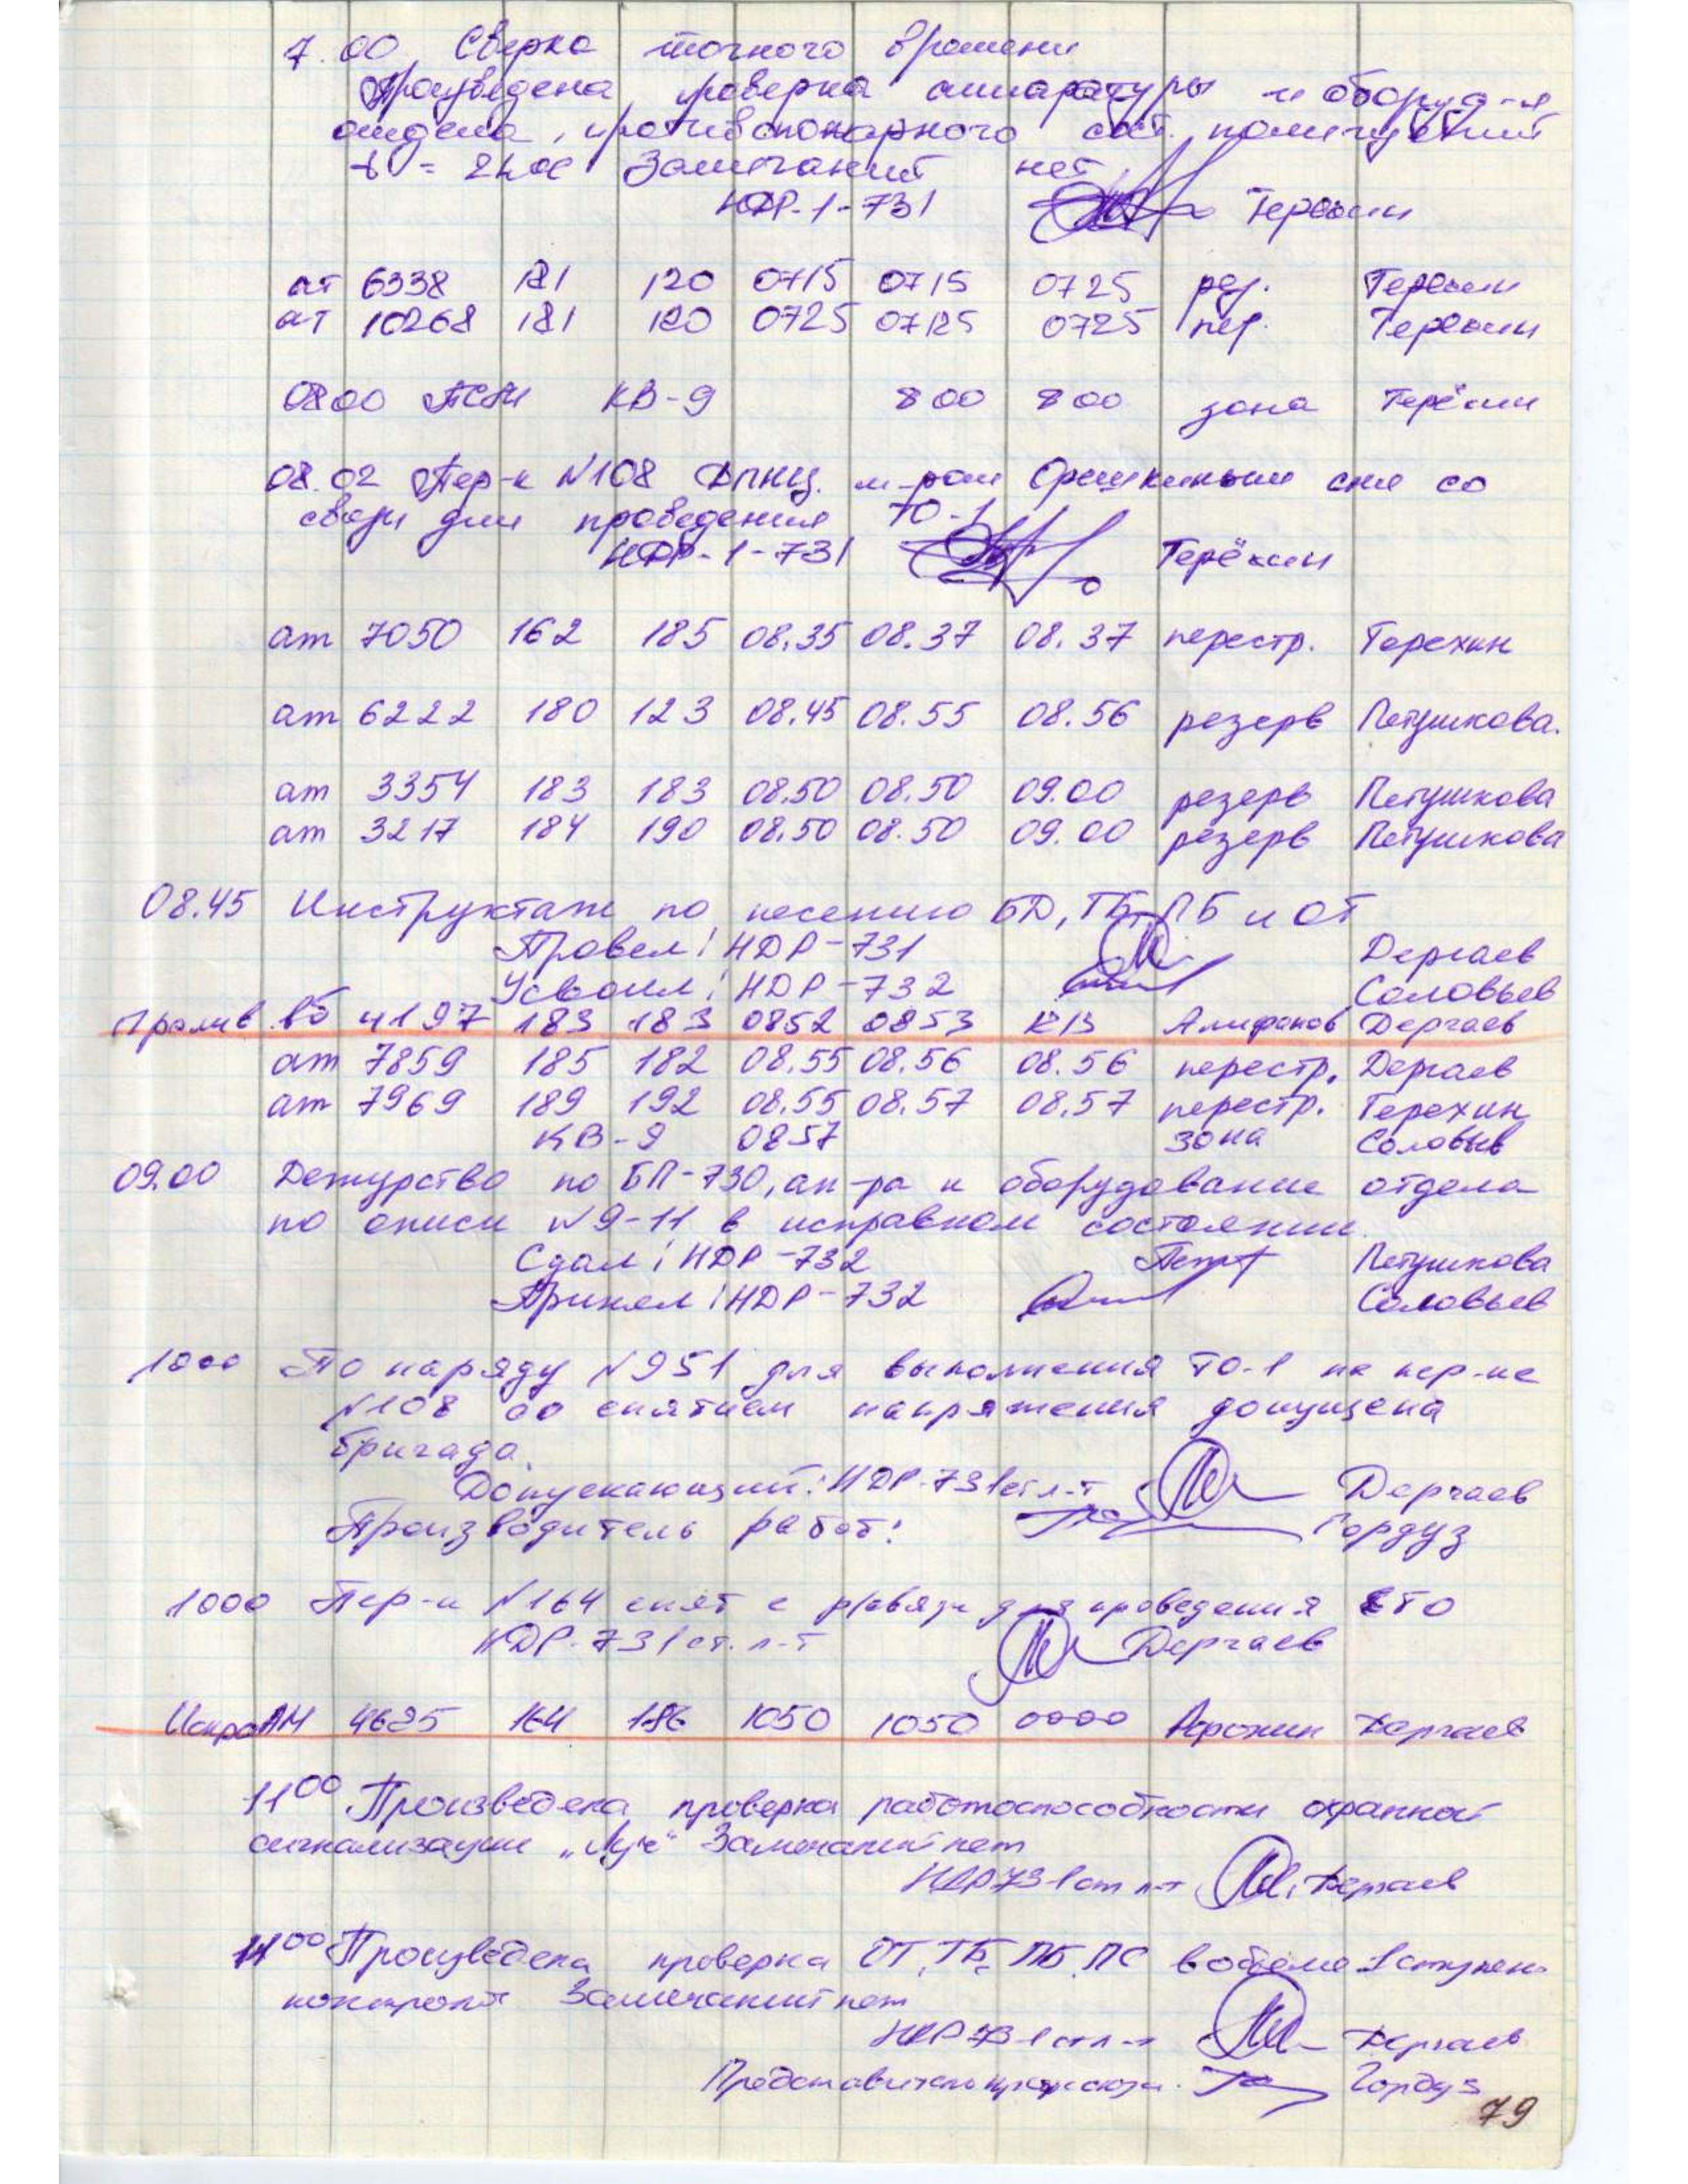 7.00 Сверка точного времени
Произведена проверка аппаратуры и оборуд-я
отдела, противопожарного сост. помещений
Замечаний нет
НДР-1-731 Терёхин
ат 6338 181 120 0715 0715 0725 рез. Терёхин
ат 10268 181 120 0725 0725 0725 пер. Терёхин
0800 КВ-9 800 800 зона Терёхин
08.02 Пер-к N108 м-ром Орешкиным снят со
связи для проведения ТО-1
НДР-1-731 Терёхин
ат 7050 162 185 08.35 08.37 08.37 перестр. Терехин
ат 6222 180 123 08.45 08.55 08.56 резерв Петушкова.
ат 3354 183 183 08.50 08.50 09.00 резерв Петушкова
ат 3217 184 190 08.50 08.50 09.00 резерв Петушкова
08.45 Инструктаж по несению БД, ТБ, ПБ и ОТ
Провел: НДР-731 Дергаев
Усвоил: НДР-732 Соловьев
Пролив 4197 183 183 0852 0853 Алифанов Дергаев
ат 7859 185 182 08.55 08.56 08.56 перестр. Дергаев
ат 7969 189 192 08.55 08.57 08.57 перестр. Терехин
КВ-9 0857 зона Соловьев
09.00 Дежурство по БП-730, ап-ра и оборудование отдела
по описи N9-11 в исправном состоянии.
Сдал: НДР-732 Петушкова
Принял: НДР-732 Соловьев
1000 По наряду N951 для выполнения ТО-1 на пер-ке
N108 со снятием напряжения допущена
бригада.
Допускающий: НДР-731 ст. л-т Дергаев
Производитель работ: Гордуз
1000 Пер-к N164 снят с р/связи для проведения ЕТО
НДР-731 ст. л-т Дергаев
Искра АМ 4625 164 186 1050 1050 0000 Дергаев
11 00 Произведена проверка работоспособности охранной
сигнализации „Луч“ Замечаний нет
НДР 731 ст л-т Дергаев
11 00 Произведена проверка ОТ, ТБ, ПБ, ПС в объёме 1 ступени
контроля Замечаний нет
НДР 731 ст л-т Дергаев
Представитель профсоюза. Гордуз
79